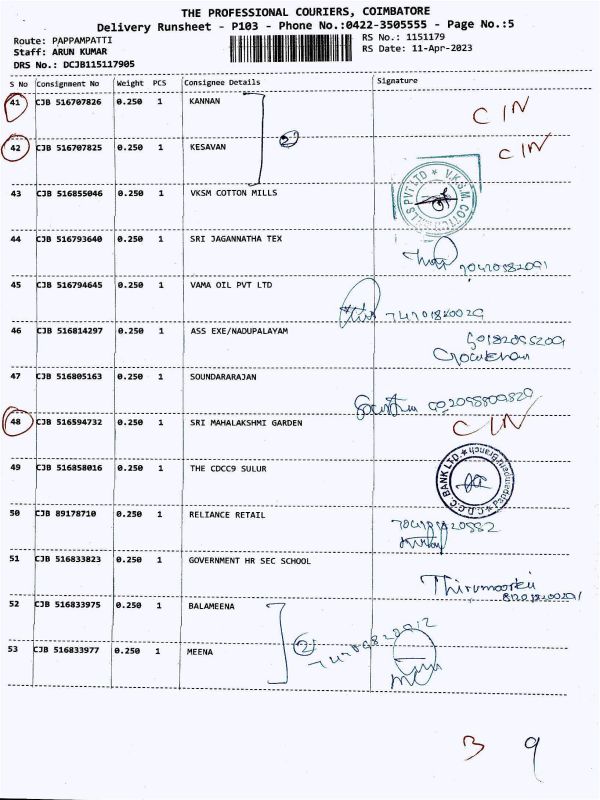 THE PROFESSIONAL COURIERS, COIMBATORE
Delivery Runsheet - P103 - Phone No.:0422-3505555 - Page No.:5
Route: PAPPAMPATTI
Staff: ARUN KUMAR
DRS No.: DCJB115117905
RS No.: 1151179
RS Date: 11-Apr-2023
S No Consignment No Weight PCS Consignee Details Signature
41 CJB 516707826 0.250 1 KANNAN C IN
42 CJB 516707825 0.250 1 KESAVAN C IN
2
43 CJB 516855046 0.250 1 VKSM COTTON MILLS
44 CJB 516793640 0.250 1 SRI JAGANNATHA TEX
45 CJB 516794645 0.250 1 VAMA OIL PVT LTD
46 CJB 516814297 0.250 1 ASS EXE/NADUPALAYAM
47 CJB 516805163 0.250 1 SOUNDARARAJAN
48 CJB 516594732 0.250 1 SRI MAHALAKSHMI GARDEN C IN
49 CJB 516858016 0.250 1 THE CDCC9 SULUR
C.D.C.C. BANK LTD.
50 CJB 89178710 0.250 1 RELIANCE RETAIL
51 CJB 516833823 0.250 1 GOVERNMENT HR SEC SCHOOL
52 CJB 516833975 0.250 1 BALAMEENA
2
53 CJB 516833977 0.250 1 MEENA
3 9